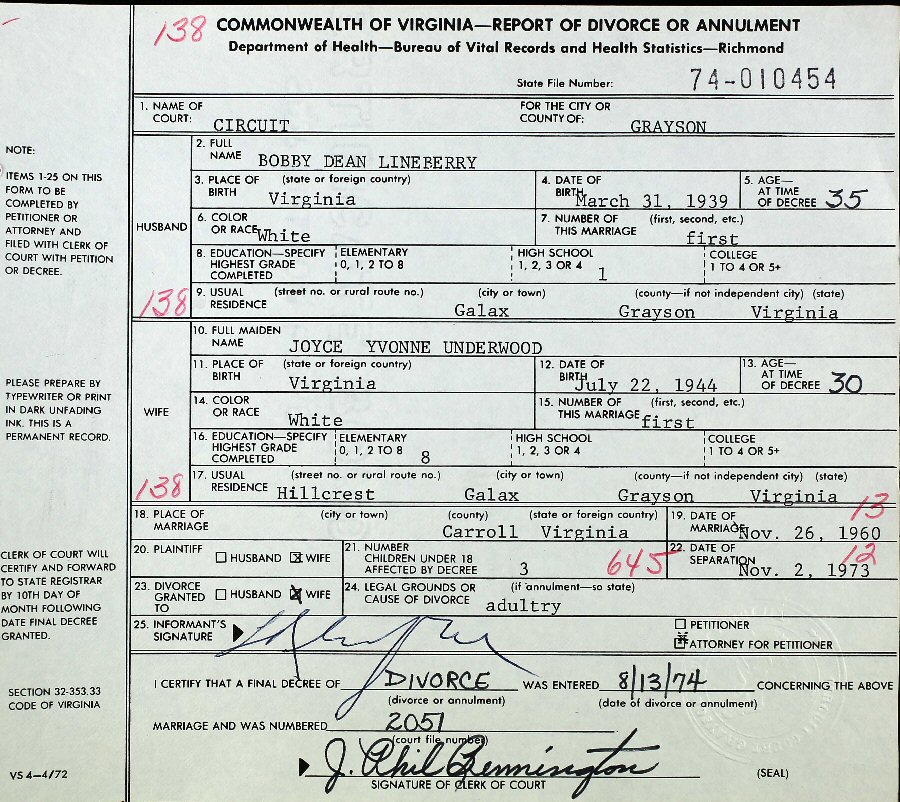 138 COMMONWEALTH OF VIRGINIA—REPORT OF DIVORCE OR ANNULMENT
Department of Health—Bureau of Vital Records and Health Statistics—Richmond
State File Number: 74-010454
1. NAME OF COURT: CIRCUIT FOR THE CITY OR COUNTY OF: GRAYSON
NOTE:
ITEMS 1-25 ON THIS
FORM TO BE
COMPLETED BY
PETITIONER OR
ATTORNEY AND
FILED WITH CLERK OF
COURT WITH PETITION
OR DECREE.
HUSBAND
138
2. FULL NAME BOBBY DEAN LINEBERRY
3. PLACE OF BIRTH (state or foreign country) Virginia
4. DATE OF BIRTH March 31, 1939
5. AGE— AT TIME OF DECREE 35
6. COLOR OR RACE White
7. NUMBER OF THIS MARRIAGE (first, second, etc.) first
8. EDUCATION—SPECIFY HIGHEST GRADE COMPLETED ELEMENTARY 0, 1, 2 TO 8 HIGH SCHOOL 1, 2, 3 OR 4 1 COLLEGE 1 TO 4 OR 5+
9. USUAL RESIDENCE (street no. or rural route no.) (city or town) (county—if not independent city) (state)
Galax Grayson Virginia
PLEASE PREPARE BY
TYPEWRITER OR PRINT
IN DARK UNFADING
INK. THIS IS A
PERMANENT RECORD.
WIFE
138
10. FULL MAIDEN NAME JOYCE YVONNE UNDERWOOD
11. PLACE OF BIRTH (state or foreign country) Virginia
12. DATE OF BIRTH July 22, 1944
13. AGE— AT TIME OF DECREE 30
14. COLOR OR RACE White
15. NUMBER OF THIS MARRIAGE (first, second, etc.) first
16. EDUCATION—SPECIFY HIGHEST GRADE COMPLETED ELEMENTARY 0, 1, 2 TO 8 8 HIGH SCHOOL 1, 2, 3 OR 4 COLLEGE 1 TO 4 OR 5+
17. USUAL RESIDENCE (street no. or rural route no.) (city or town) (county—if not independent city) (state)
Hillcrest Galax Grayson Virginia
18. PLACE OF MARRIAGE (city or town) (county) (state or foreign country)
Carroll Virginia
19. DATE OF MARRIAGE Nov. 26, 1960 13
CLERK OF COURT WILL
CERTIFY AND FORWARD
TO STATE REGISTRAR
BY 10TH DAY OF
MONTH FOLLOWING
DATE FINAL DECREE
GRANTED.
20. PLAINTIFF HUSBAND X WIFE
21. NUMBER CHILDREN UNDER 18 AFFECTED BY DECREE 3 645
22. DATE OF SEPARATION Nov. 2, 1973 12
23. DIVORCE GRANTED TO HUSBAND X WIFE
24. LEGAL GROUNDS OR CAUSE OF DIVORCE (if annulment—so state) adultry
25. INFORMANT'S SIGNATURE
PETITIONER
X ATTORNEY FOR PETITIONER
SECTION 32-353.33
CODE OF VIRGINIA
I CERTIFY THAT A FINAL DECREE OF DIVORCE WAS ENTERED 8/13/74 CONCERNING THE ABOVE
(divorce or annulment) (date of divorce or annulment)
MARRIAGE AND WAS NUMBERED 2051
(court file number)
J. Phil Bennington
SIGNATURE OF CLERK OF COURT (SEAL)
VS 4—4/72